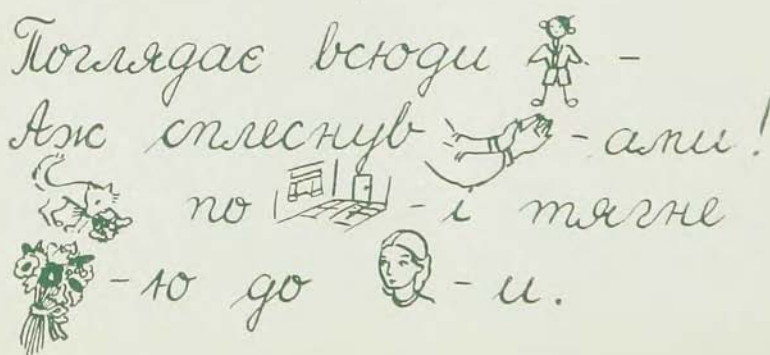 Поглядає всюди -
Аж сплеснув - ами!
по - і тягне
- ю до - и.